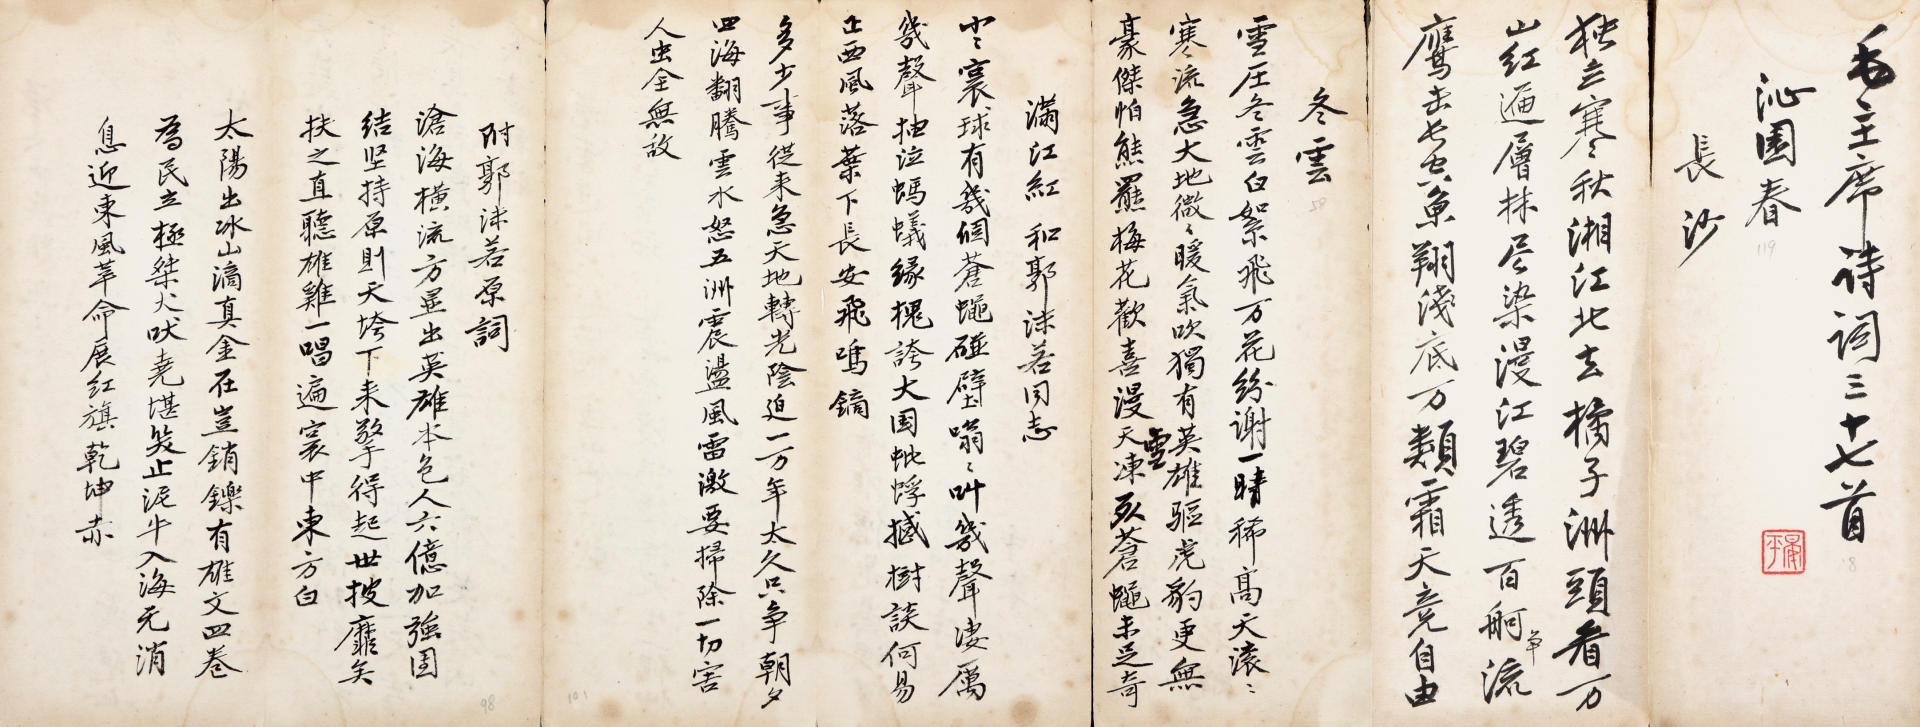 毛主席诗词三十七首
沁園春
119
長沙
独立寒秋湘江北去橘子洲頭看万
山红遍層林尽染漫江碧透百舸争流
鹰击长空鱼翔浅底万類霜天竞自由
冬雲
雪压冬雲白絮飛万花纷谢一時稀高天滚〻
寒〻流急大地微〻暖氣吹獨有英雄驱虎豹更無
豪傑怕熊羆梅花歡喜漫天雪凍死蒼蠅未足奇
滿江紅 和郭沫若同志
小〻寰球有幾個蒼蠅碰壁嗡〻叫幾聲淒厲
幾聲抽泣螞蟻緣槐誇大国蚍蜉撼樹談何易
正西風落葉下長安飛鳴鏑
多少事從来急天地轉光陰迫一万年太久只争朝夕
四海翻騰雲水怒五洲震盪風雷激要掃除一切害
人虫全無敌
101
附郭沫若原詞
98
滄海横流方显出英雄本色人六億加強团
结坚持原則天垮下来擎得起世披靡矣
扶之直聽雄雞一唱遍寰中東方白
太陽出冰山滴真金在豈銷鑠有雄文四卷
為民立極桀犬吠堯堪笑止泥牛入海无消
息迎東風革命展红旗乾坤赤